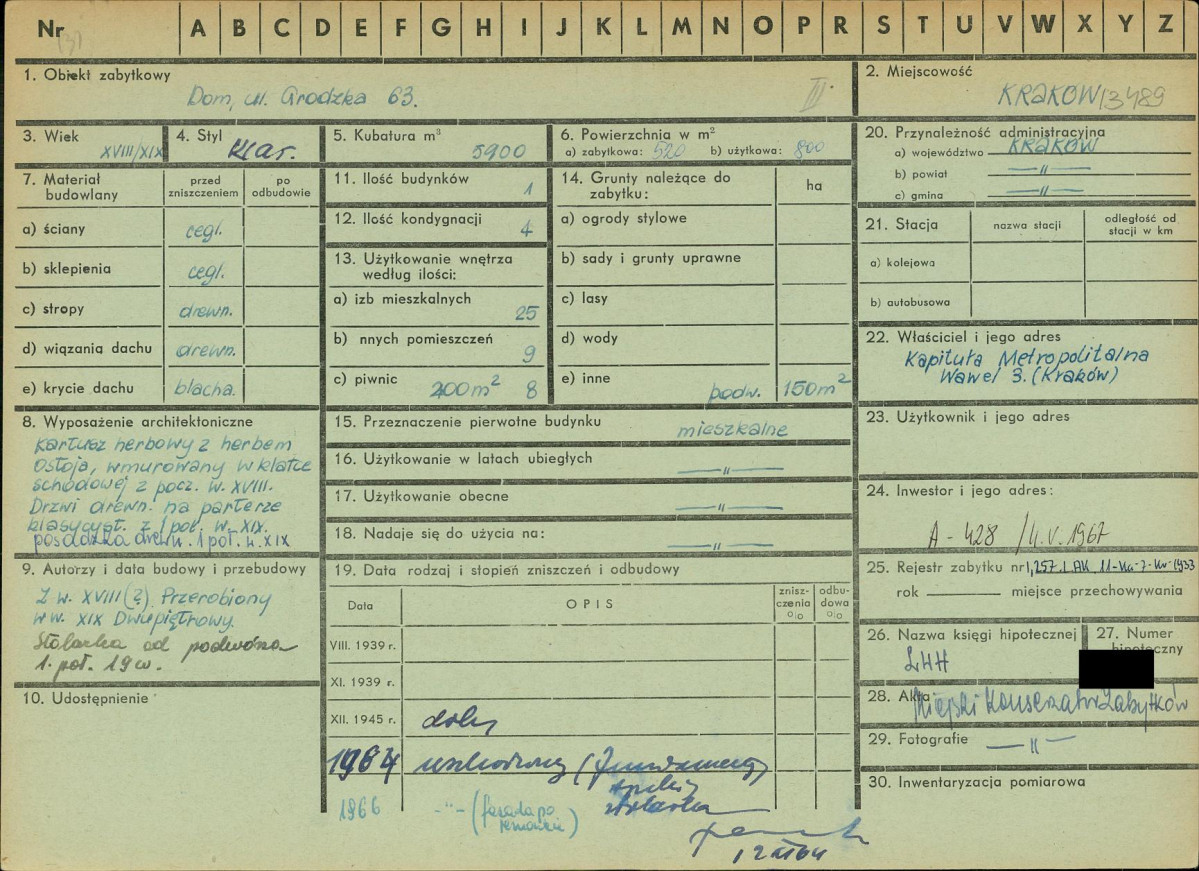 Nr A B C D E F G H I J K L M N O P R S T U V W X Y Z
1. Obiekt zabytkowy
Dom, ul. Grodzka 63.
III
2. Miejscowość
KRAKÓW
3. Wiek
XVIII/XIX
4. Styl
klas.
5. Kubatura m³
5900
6. Powierzchnia w m²
a) zabytkowa: 520 b) użytkowa: 800
20. Przynależność administracyjna
a) województwo KRAKÓW
b) powiat —"—
c) gmina —"—
7. Materiał budowlany
przed zniszczeniem
po odbudowie
a) ściany cegl.
b) sklepienia cegl.
c) stropy drewn.
d) wiązania dachu drewn.
e) krycie dachu blacha.
11. Ilość budynków 1
12. Ilość kondygnacji 4
13. Użytkowanie wnętrza
według ilości:
a) izb mieszkalnych 25
b) nnych pomieszczeń 9
c) piwnic 200m² 8
14. Grunty należące do
zabytku:
ha
a) ogrody stylowe
b) sady i grunty uprawne
c) lasy
d) wody
e) inne podw. 150m²
21. Stacja
nazwa stacji
odległość od
stacji w km
a) kolejowa
b) autobusowa
22. Właściciel i jego adres
Kapituła Metropolitalna
Wawel 3. (Kraków)
8. Wyposażenie architektoniczne
Kartusz herbowy z herbem
Ostoja, wmurowany w klatce
schodowej z pocz. w. XVIII.
Drzwi drewn. na parterze
klasycyst. z 1 poł. w. XIX.
posadzka drewn. 1 poł. w. XIX
15. Przeznaczenie pierwotne budynku mieszkalne
16. Użytkowanie w latach ubiegłych —"—
17. Użytkowanie obecne —"—
18. Nadaje się do użycia na: —"—
23. Użytkownik i jego adres
24. Inwestor i jego adres:
A - 428 /4.V.1967
25. Rejestr zabytku nr
rok miejsce przechowywania
9. Autorzy i data budowy i przebudowy
Z w. XVIII (?) Przerobiony
w w. XIX Dwupiętrowy.
Stolarka od podwórza
1. poł. 19 w.
10. Udostępnienie
19. Data rodzaj i stopień zniszczeń i odbudowy
Data
OPIS
znisz-
czenia
%
odbu-
dowa
%
VIII. 1939 r.
XI. 1939 r.
XII. 1945 r. dobry
1964
stolarka
1966 -"- (fasada po
remoncie)
26. Nazwa księgi hipotecznej
LHH
27. Numer
hipoteczny
28. Akta Miejski Konserwator Zabytków
29. Fotografie —"—
30. Inwentaryzacja pomiarowa